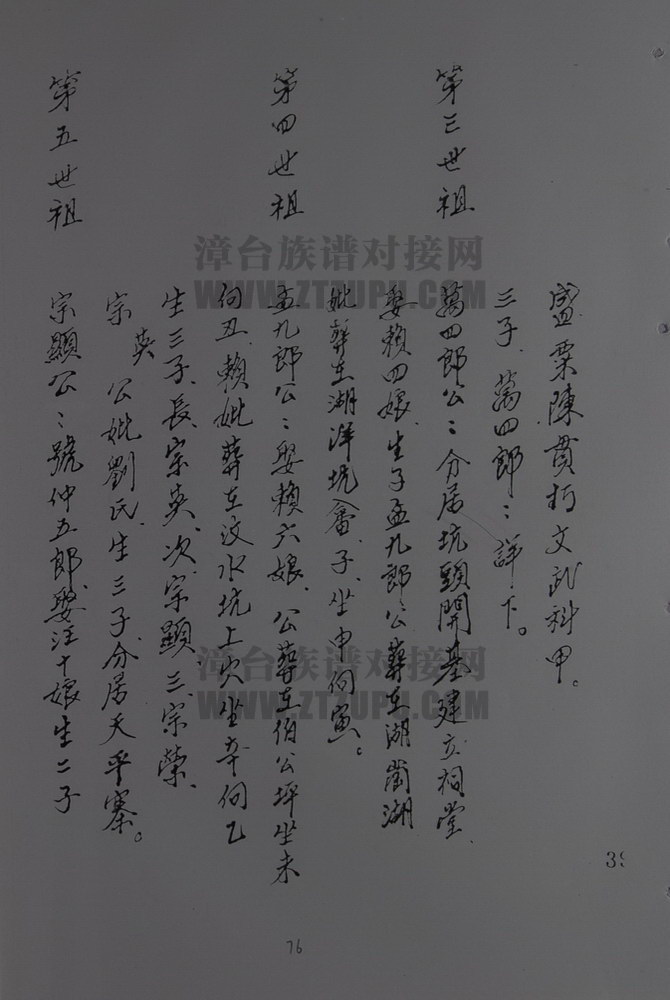 盛果陳貫朽文武科甲。
三子、萬四郎：詳下。
第三世祖
萬四郎公：分居坑頭開基建立祠堂、
娶賴四娘、生子孟九郎公葬在湖崗湖
妣葬在湖洋坑畲子、坐申向寅。
第四世祖
孟九郎公：娶賴六娘、公葬在伯公坪坐未
向丑、賴妣葬在汶水坑上穴坐辛向乙
生三子、長、宗英、次、宗顯、三、宗榮、
宗英公妣劉氏、生三子分居天平寨。
第五世祖
宗顯公：號仲五郎、娶汪十娘生二子
漳台族谱对接网
WWW.ZTZUPU.COM
漳台族谱对接网
WWW.ZTZUPU.COM
76